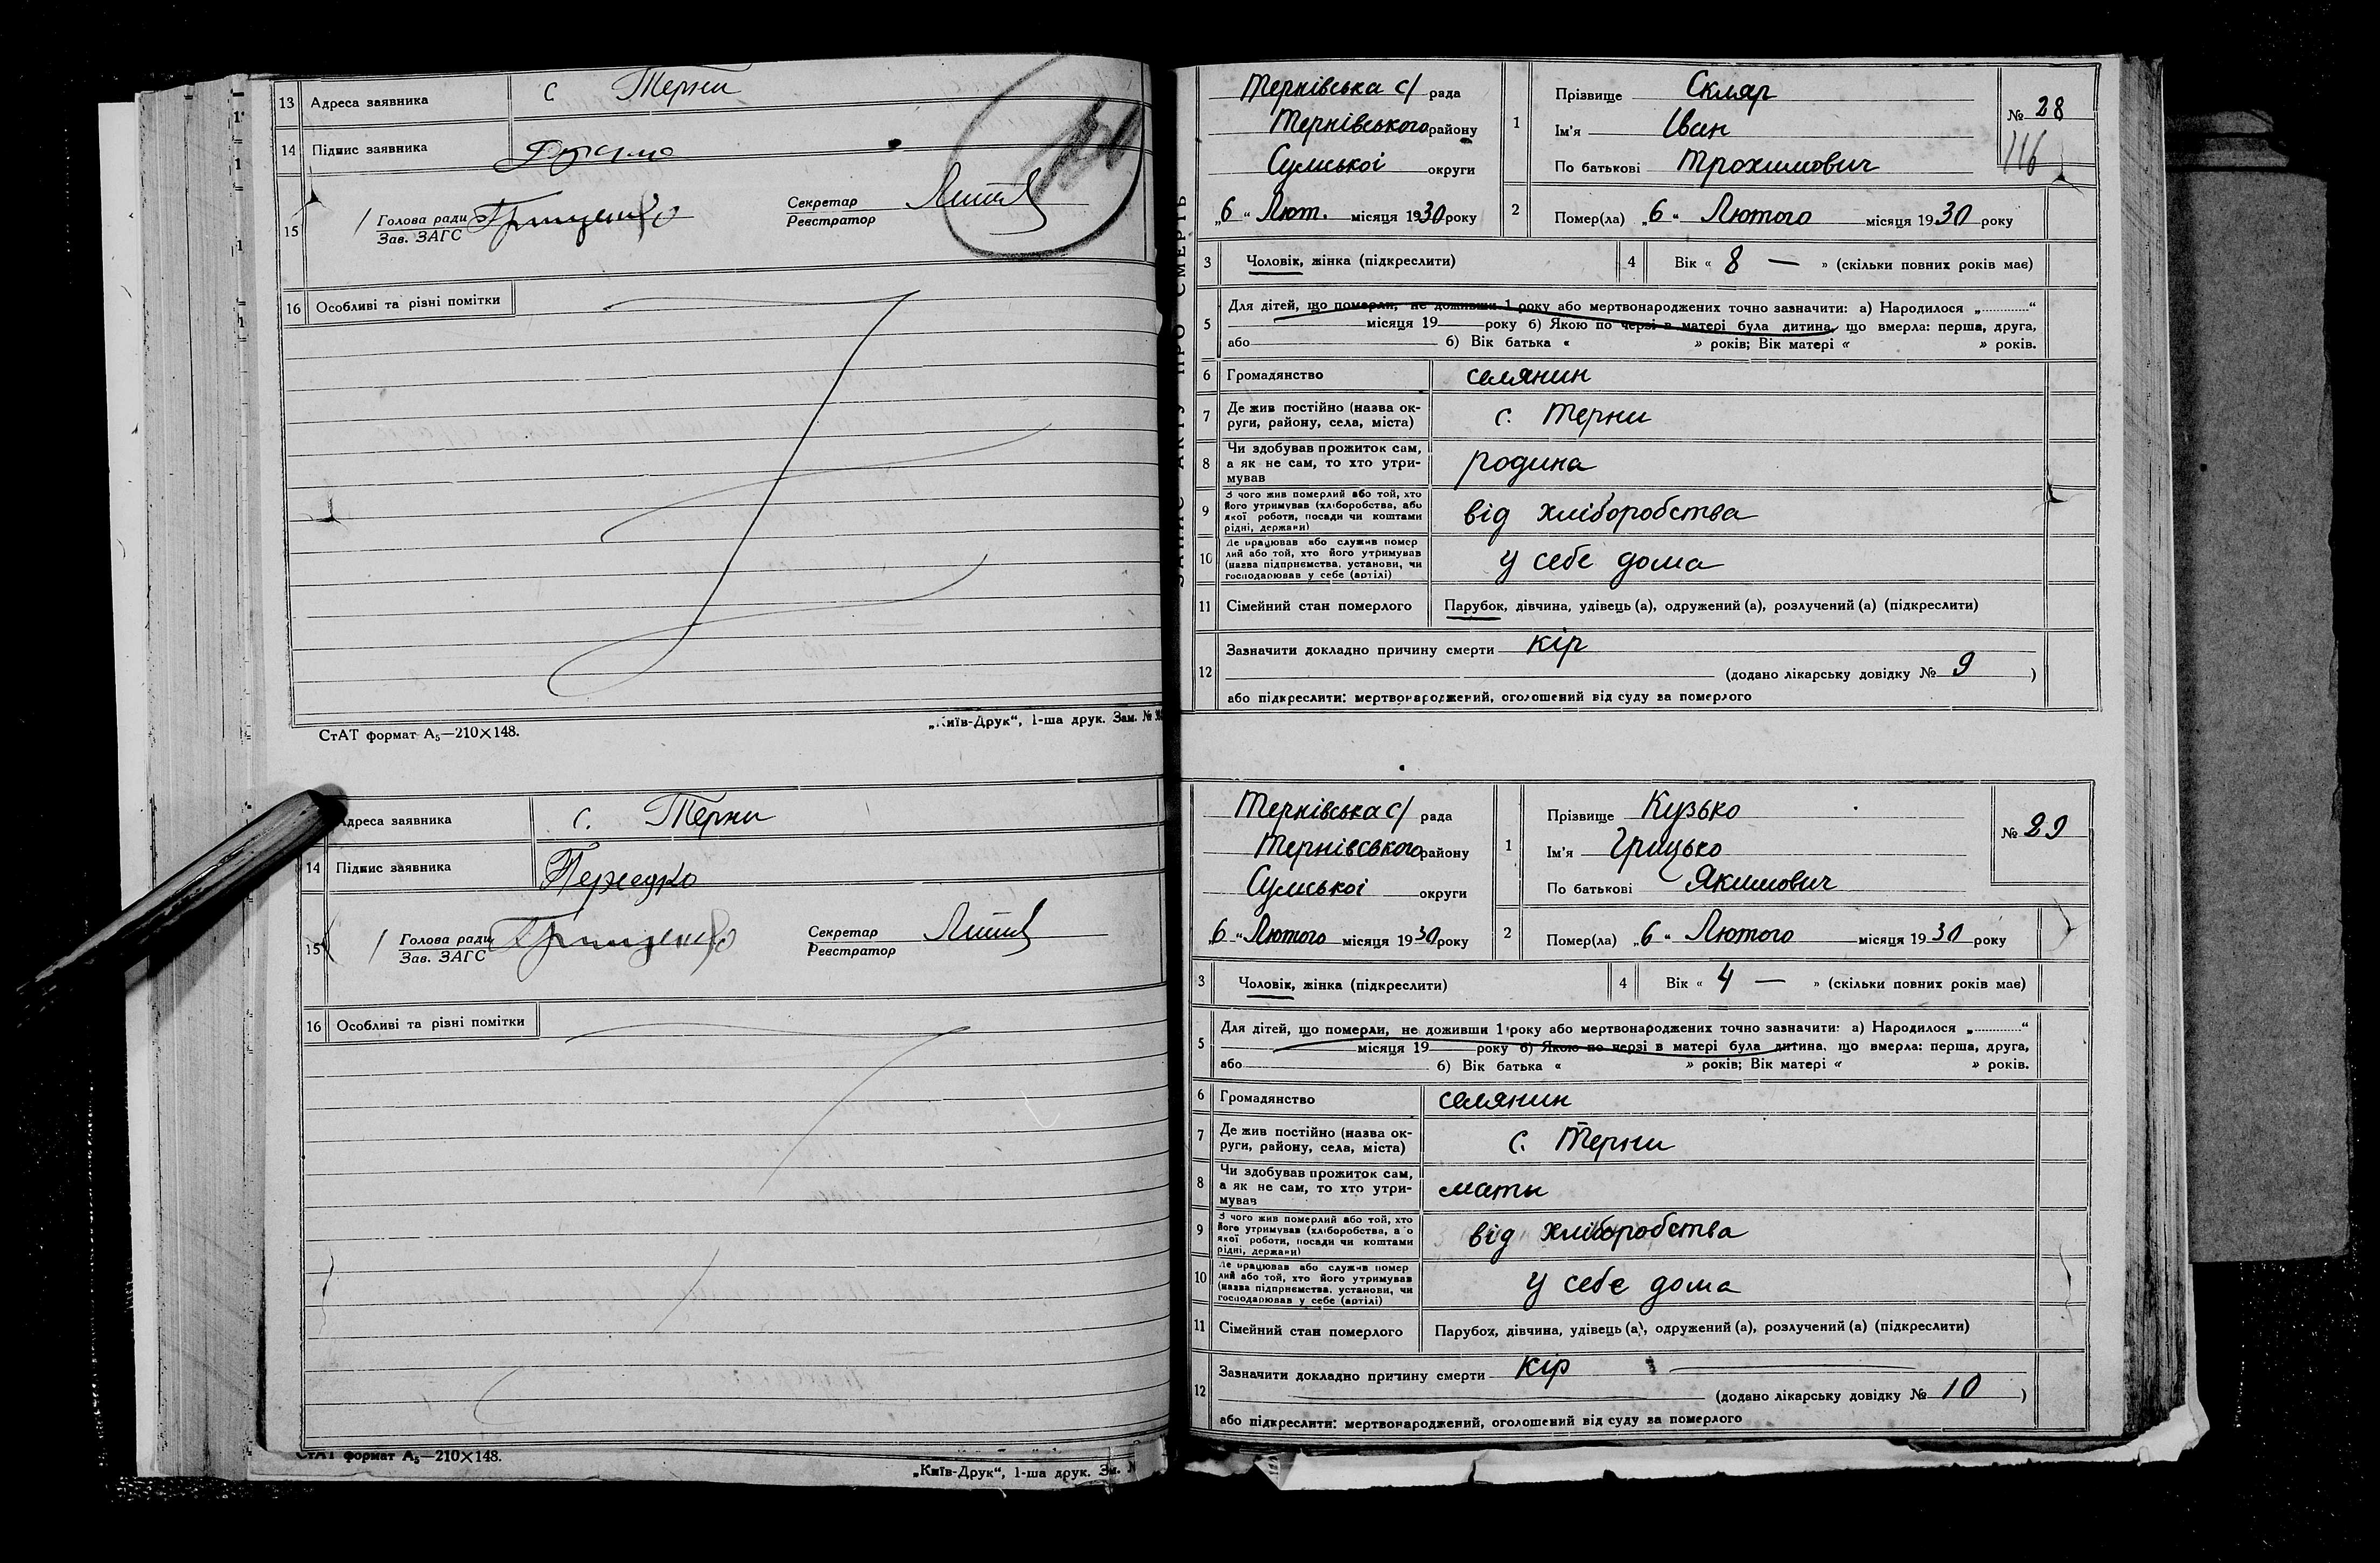 13 Адреса заявника с Терни
14 Підпис заявника
15 Голова ради Грищенко Секретар
Зав. ЗАГС Реєстратор
16 Особливі та різні помітки
СтАТ формат А5—210×148. „Київ-Друк“, 1-ша друк. Зам. №
Адреса заявника с. Терни
14 Підпис заявника
15 Голова ради Грищенко Секретар
Зав. ЗАГС Реєстратор
16 Особливі та різні помітки
СтАТ формат А5—210×148.
„Київ-Друк“, 1-ша друк. Зам. №
ЗАПИС АКТУ ПРО СМЕРТЬ
Тернівська с/ рада 1 Прізвище Скляр № 28
Тернівського району Ім'я Іван 116
Сумської округи По батькові Трохимович
„6“ Лют. місяця 1930 року 2 Помер(ла) „6“ Лютого місяця 1930 року
3 Чоловік, жінка (підкреслити) 4 Вік « 8 — » (скільки повних років має)
5 Для дітей, що померли, не доживши 1 року або мертвонароджених точно зазначити: а) Народилося „............“
місяця 19 року б) Якою по черзі в матері була дитина, що вмерла: перша, друга,
або б) Вік батька « » років; Вік матері « » років.
6 Громадянство селянин
7 Де жив постійно (назва ок-
руги, району, села, міста) с. Терни
8 Чи здобував прожиток сам,
а як не сам, то хто утри-
мував родина
9 З чого жив померлий або той, хто
його утримував (хліборобства, або
якої роботи, посади чи коштами
рідні, держави) від хліборобства
10 Де працював або служив помер
лий або той, хто його утримував
(назва підприємства, установи, чи
господарював у себе (артілі) у себе дома
11 Сімейний стан померлого Парубок, дівчина, удівець (а), одружений (а), розлучений (а) (підкреслити)
12 Зазначити докладно причину смерти кір
(додано лікарську довідку № 9 )
або підкреслити: мертвонароджений, оголошений від суду за померлого
Тернівська с/ рада 1 Прізвище Кузько № 29
Тернівського району Ім'я Грицько
Сумської округи По батькові Якимович
„6“ Лютого місяця 1930 року 2 Помер(ла) „6“ Лютого місяця 1930 року
3 Чоловік, жінка (підкреслити) 4 Вік « 4 — » (скільки повних років має)
5 Для дітей, що померли, не доживши 1 року або мертвонароджених точно зазначити: а) Народилося „............“
місяця 19 року б) Якою по черзі в матері була дитина, що вмерла: перша, друга,
або б) Вік батька « » років; Вік матері « » років.
6 Громадянство селянин
7 Де жив постійно (назва ок-
руги, району, села, міста) с. Терни
8 Чи здобував прожиток сам,
а як не сам, то хто утри-
мував мати
9 З чого жив померлий або той, хто
його утримував (хліборобства, або
якої роботи, посади чи коштами
рідні, держави) від хліборобства
10 Де працював або служив помер
лий або той, хто його утримував
(назва підприємства, установи, чи
господарював у себе (артілі) у себе дома
11 Сімейний стан померлого Парубок, дівчина, удівець (а), одружений (а), розлучений (а) (підкреслити)
12 Зазначити докладно причину смерти кір
(додано лікарську довідку № 10 )
або підкреслити: мертвонароджений, оголошений від суду за померлого